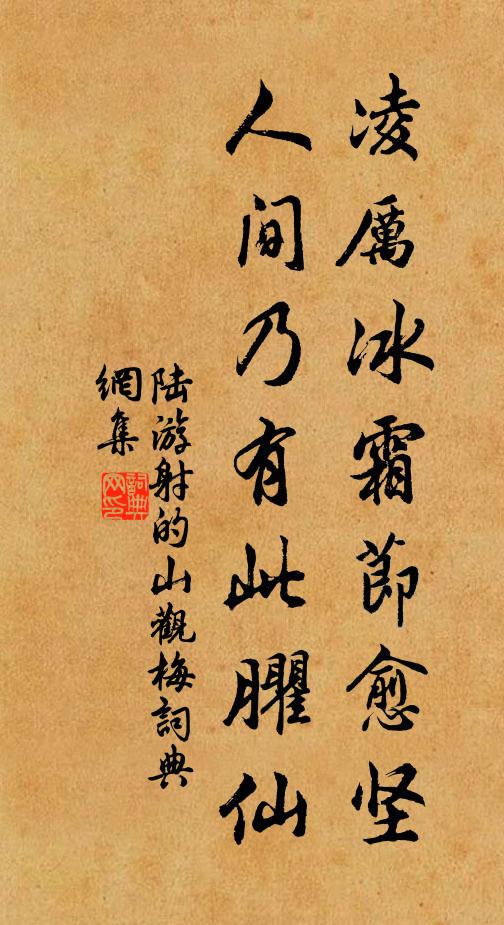 凌厲冰霜節愈坚
人间乃有此臞仙
陆游射的山觀梅詞典
網集
詞典
网印